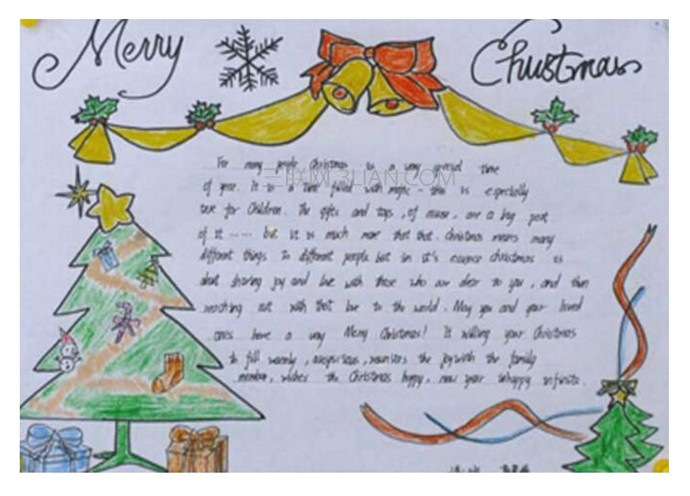 Merry Christmas
For many people Christmas is a very special time
of year. It is a time filled with magic - this is especially
true for Children. The gifts and toys, of course, are a big part
of it ...... but it is much more that that. Christmas means many
different things to different people but in it's essence christmas is
about sharing joy and love with those who are dear to you, and then
reaching out with that love to the world. May you and your loved
ones have a very Merry Christmas! It willing your Christmas
to fill warmly, auspicious, the joy with the family
member, wishes the Christmas happy, new year unhappy infinite.
3LIAN.COM